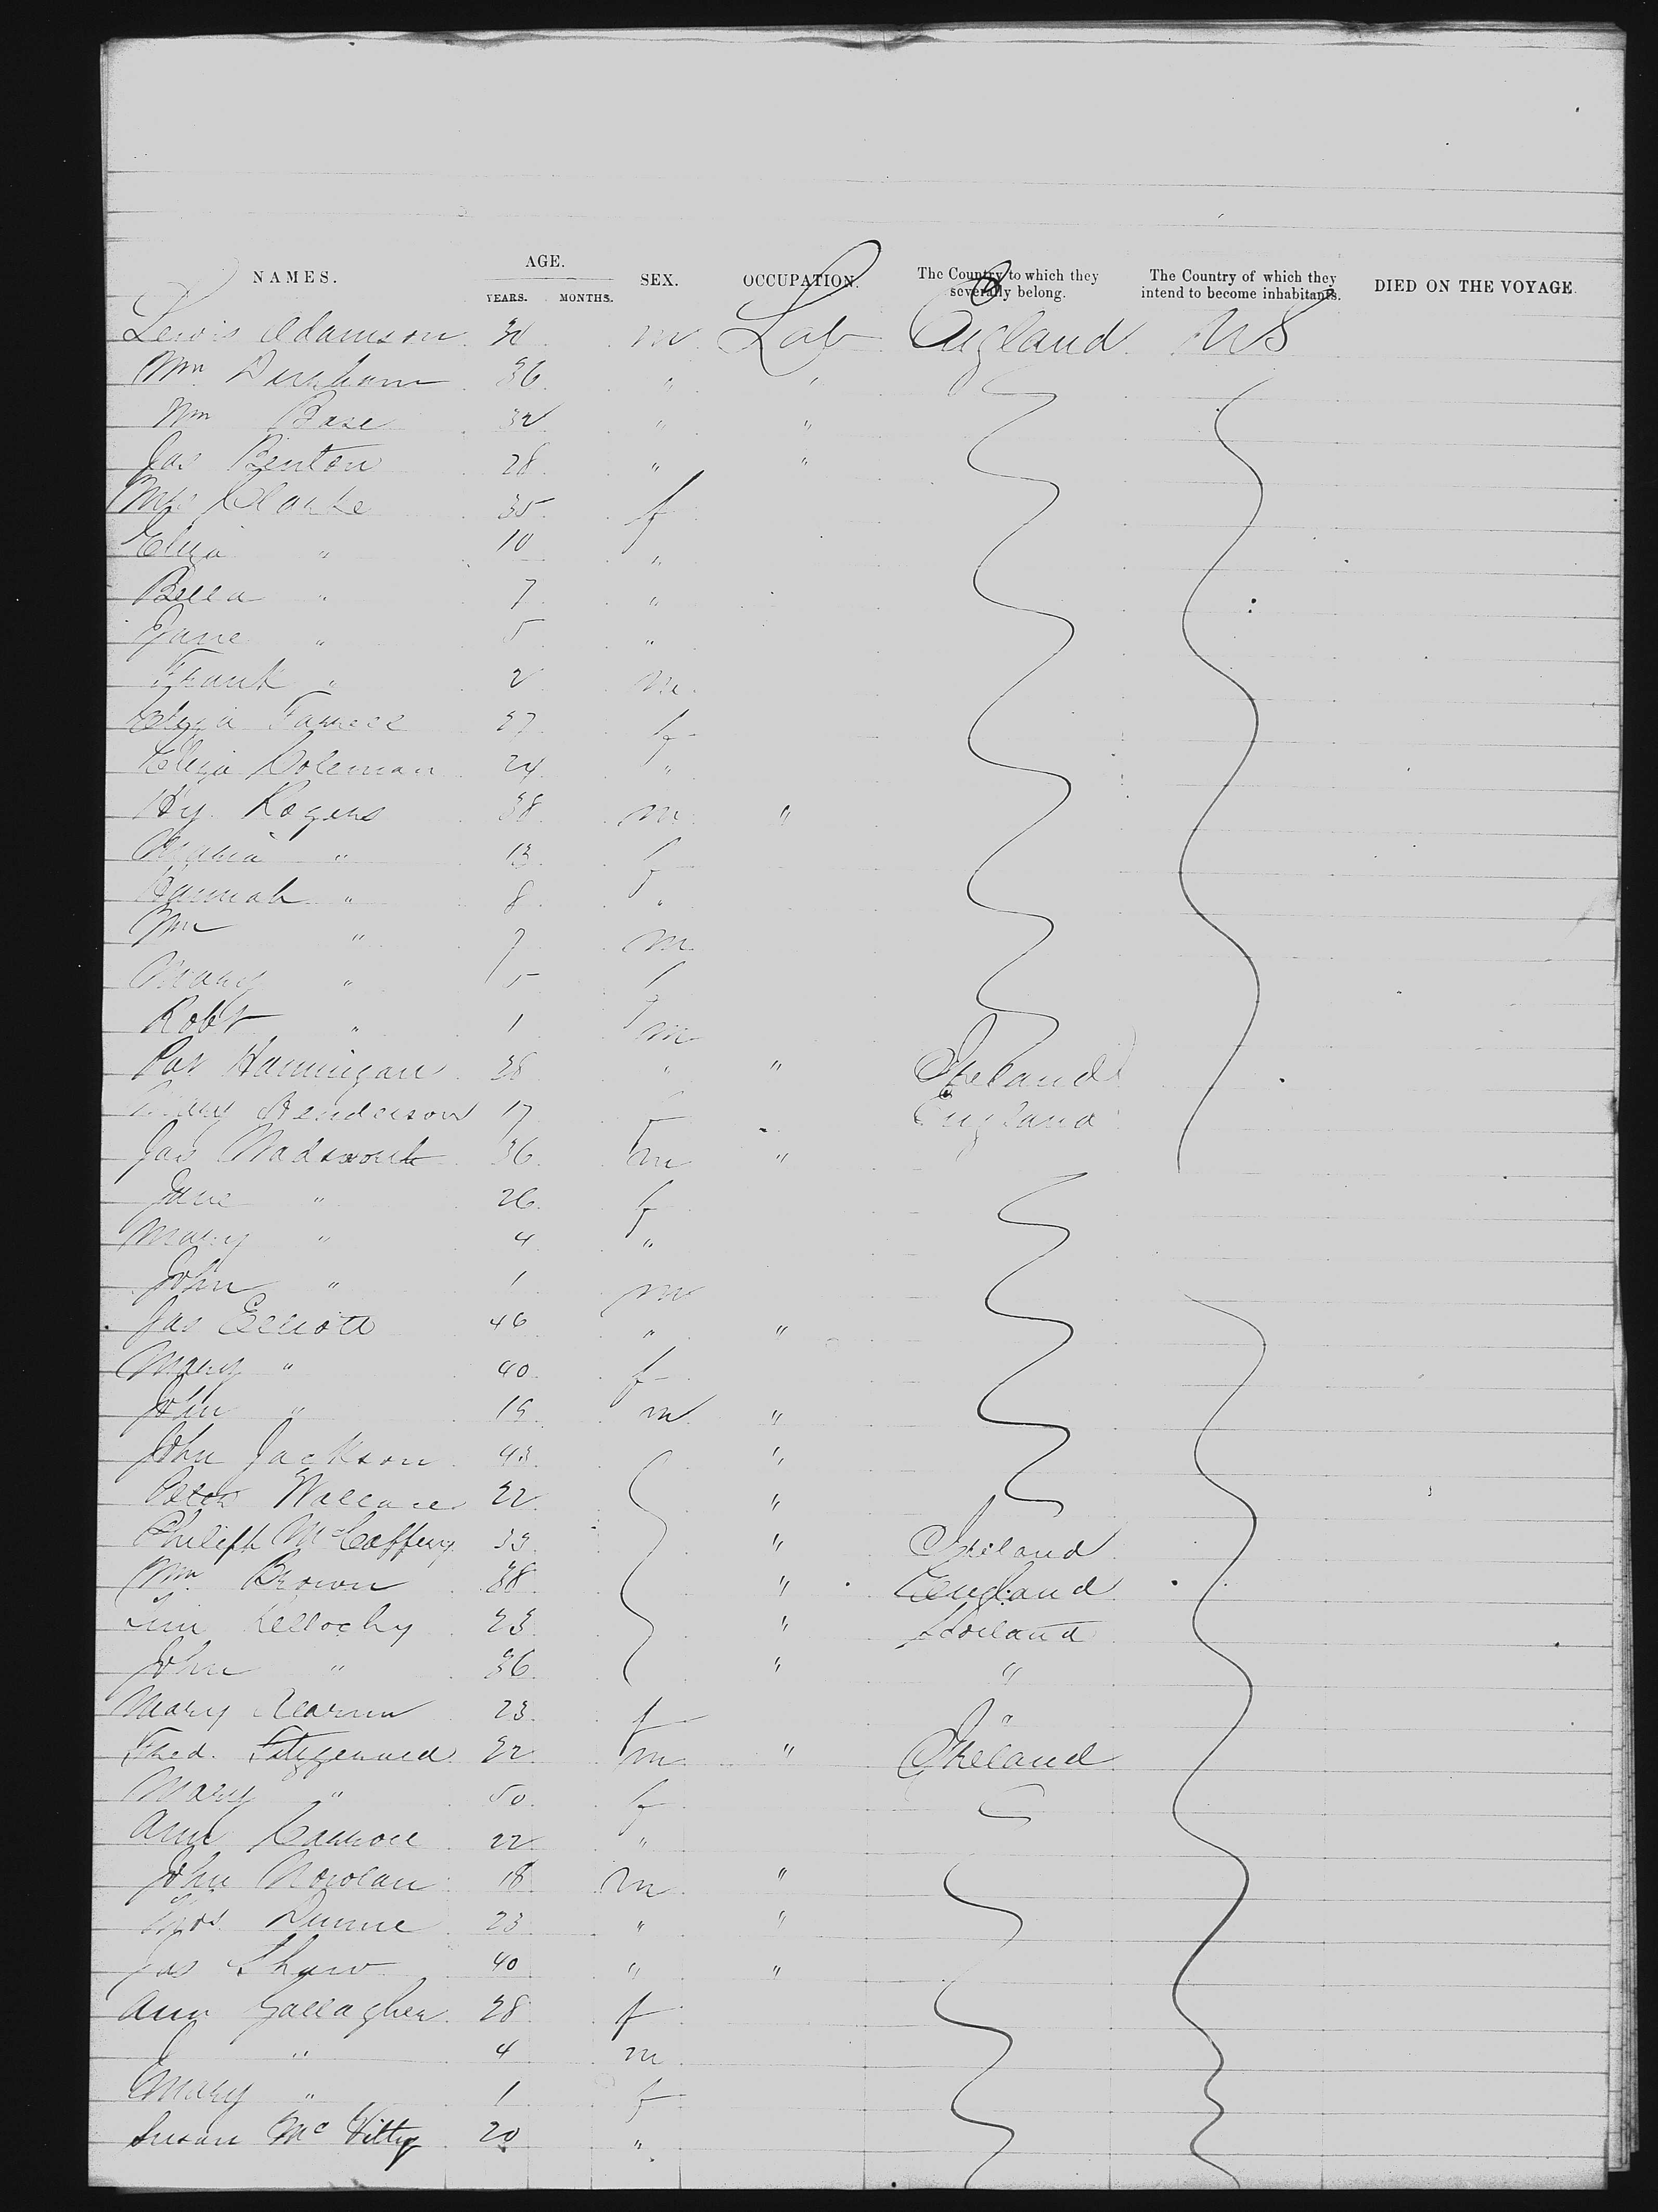 NAMES. AGE. YEARS. MONTHS. SEX. OCCUPATION. The Country to which they severally belong. The Country of which they intend to become inhabitants. DIED ON THE VOYAGE.
Lewis Adamson 30 m Lab England US
Wm Durham 36 " "
Wm Base 32 " "
Jas Benton 28 " "
Mrs Clarke 35 f
Eliza " 10 "
Bella " 7 "
Jane " 5 "
Frank " 2 m
Eliza 27 f
Eliza Coleman 24 "
Hy. Rogers 38 m "
Maria " 13 f
Hannah " 8 "
Wm " 7 m
Mary " 5 f
Robt " 1 m
Pat Hannigan 38 " " Ireland
Mary Henderson 17 f England
Jas Wadsworth 36 m "
Jane " 26 f
Mary " 4 "
John " 1 m
Jas Elliott 46 " "
Mary " 40 f
John " 19 m "
John Jackson 43 "
Peter Wallace 22 "
Philip McCaffery 33 " Ireland
Wm Brown 38 " England
23 " Scotland
John " 36 " "
Mary 23 f "
Fred. Fitzgerald 22 m " Ireland
Mary " 50 f
Ann Carroll 22 "
John Nowlan 18 m "
Thos Dunne 23 " "
Jas Shaw 40 " "
Ann Gallagher 28 f
" 4 m
Mary " 1 f
Susan McVitty 20 "